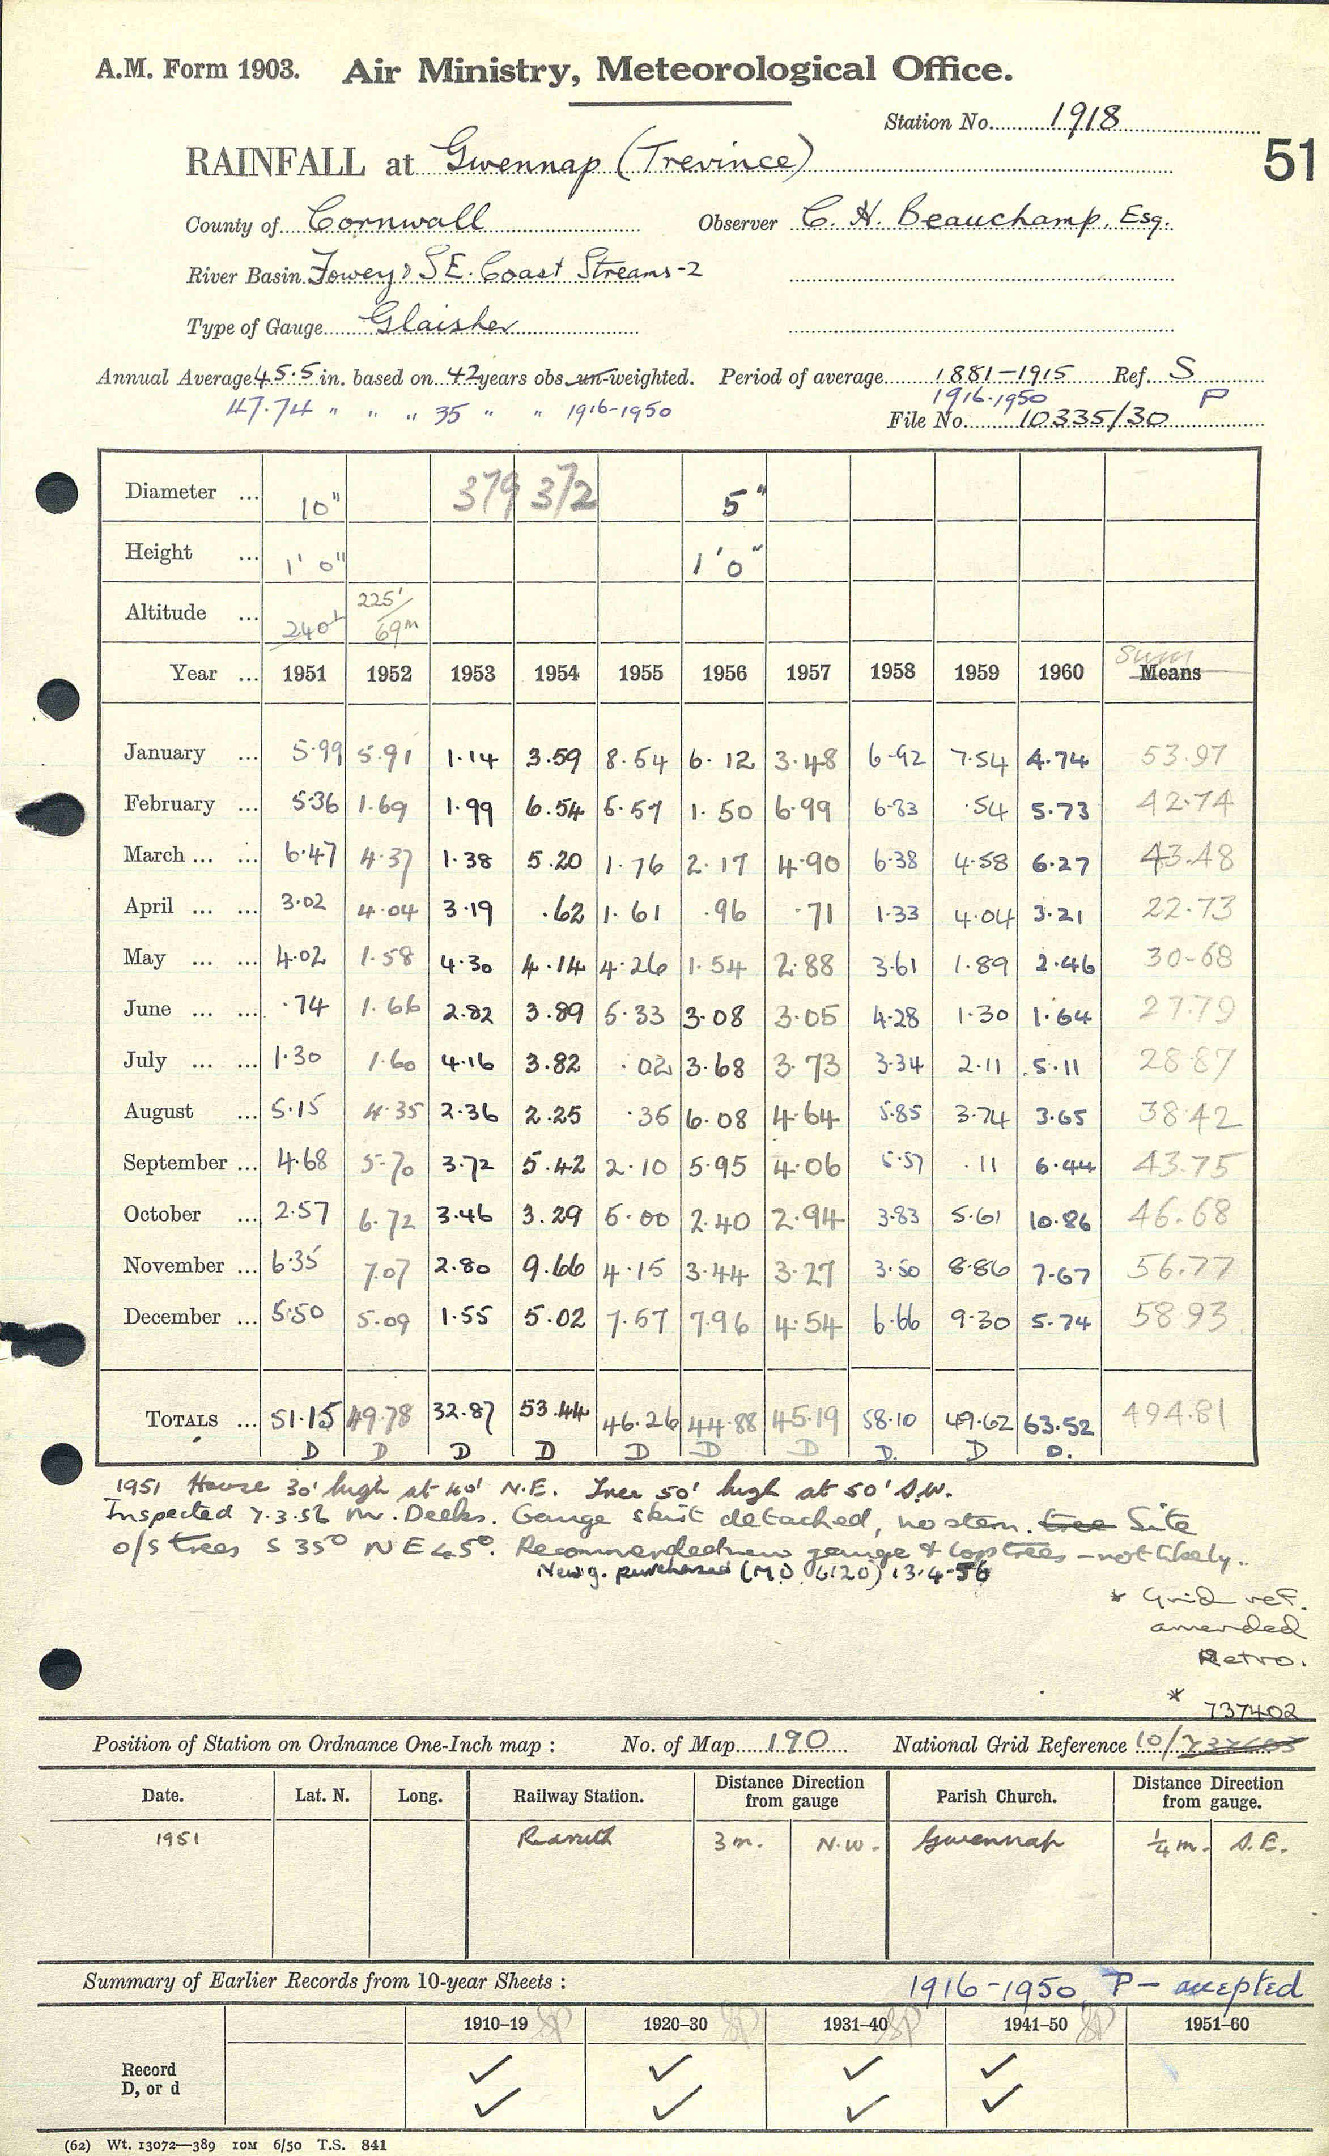 A.M. Form 1903. Air Ministry, Meteorological Office.
Station No. 1918
51
RAINFALL at Gwennap (Trevince)
County of Cornwall Observer C. H. Beauchamp, Esq.
River Basin Fowey & S E. Coast Streams-2
Type of Gauge Glaisher
Annual Average 45.5 in. based on 42 years obs. un-weighted. Period of average 1881-1915 Ref. S
47.74 " " " 35 " " 1916-1950 1916-1950 P
File No. 10335/30
Diameter ... 10" 379 372 5"
Height ... 1' 0" 1' 0"
Altitude ... 240' 225'/69m
Sum
Year ... 1951 1952 1953 1954 1955 1956 1957 1958 1959 1960 Means
January ... 5.99 5.91 1.14 3.59 8.54 6.12 3.48 6.92 7.54 4.74 53.97
February ... 5.36 1.69 1.99 6.54 5.57 1.50 6.99 6.83 .54 5.73 42.74
March ... ... 6.47 4.37 1.38 5.20 1.76 2.17 4.90 6.38 4.58 6.27 43.48
April ... ... 3.02 4.04 3.19 .62 1.61 .96 .71 1.33 4.04 3.21 22.73
May ... ... 4.02 1.58 4.30 4.14 4.26 1.54 2.88 3.61 1.89 2.46 30.68
June ... ... .74 1.66 2.82 3.89 5.33 3.08 3.05 4.28 1.30 1.64 27.79
July ... ... 1.30 1.60 4.16 3.82 .02 3.68 3.73 3.34 2.11 5.11 28.87
August ... 5.15 4.35 2.36 2.25 .35 6.08 4.64 5.85 3.74 3.65 38.42
September ... 4.68 5.70 3.72 5.42 2.10 5.95 4.06 5.57 .11 6.44 43.75
October ... 2.57 6.72 3.46 3.29 5.00 2.40 2.94 3.83 5.61 10.86 46.68
November ... 6.35 7.07 2.80 9.66 4.15 3.44 3.27 3.50 8.86 7.67 56.77
December ... 5.50 5.09 1.55 5.02 7.57 7.96 4.54 6.66 9.30 5.74 58.93
TOTALS ... 51.15 49.78 32.87 53.44 46.26 44.88 45.19 58.10 49.62 63.52 494.81
D D D D D D D D. D D.
1951 House 30' high at 40' N.E. Tree 50' high at 50' S.W.
Inspected 7.3.56 Mr. Deeks. Gauge skirt detached, no stem. tree Site
o/s trees S 35° N E 45°. Recommended new gauge & lop trees - not likely.
New g. purchased (M.O. 6120) 13.4.56
* Grid ref.
amended
Retro.
* 737402
Position of Station on Ordnance One-Inch map : No. of Map 190 National Grid Reference 10/
Date. Lat. N. Long. Railway Station. Distance from gauge Direction Parish Church. Distance from gauge. Direction
1951 Redruth 3 m. N.W. Gwennap ¼ m. S.E.
Summary of Earlier Records from 10-year Sheets : 1916-1950 P - accepted
1910–19 SP 1920–30 SP 1931–40 SP 1941–50 SP 1951–60
Record ✓ ✓ ✓ ✓
D, or d ✓ ✓ ✓ ✓
(62) Wt. 13072—389 10M 6/50 T.S. 841